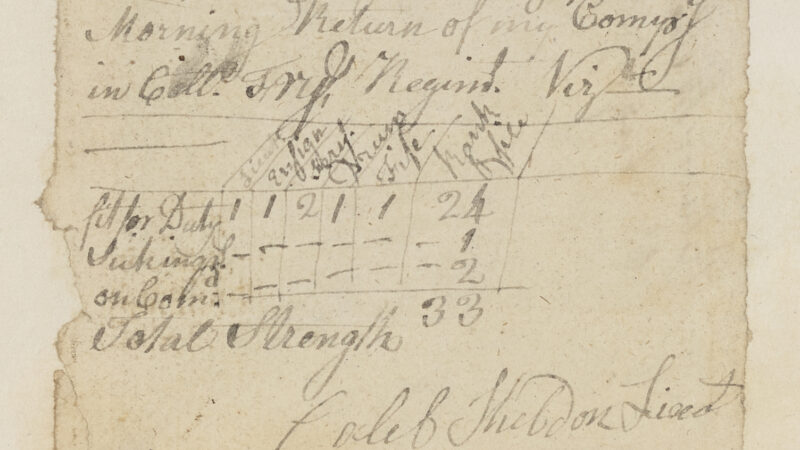 Morning Return of my Compy
in Coll.º Fryś Regimt. Viz
Lieut Ensign Serjt. Drum Fife Rank & file
fit for Duty 1 1 2 1 1 24
Sick in qrs - - - - - 1
on Comd - - - - - 2
33
Total Strength
Caleb Sheldon Lieut